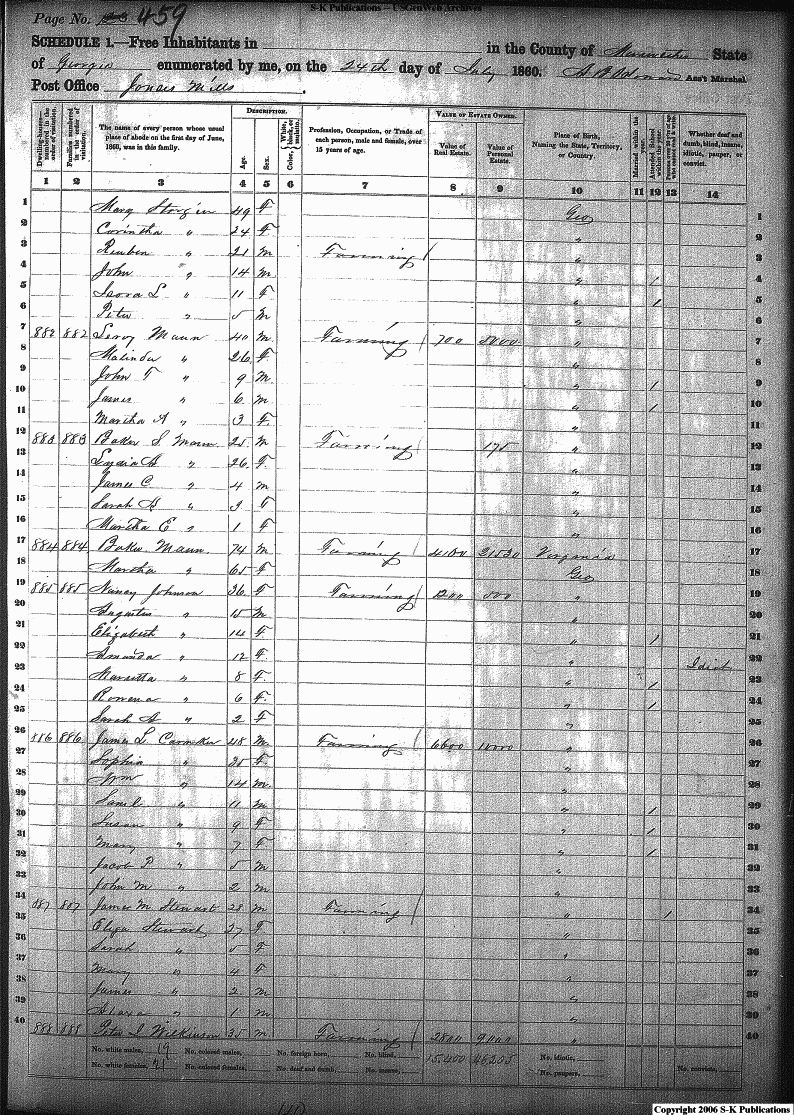 S-K Publications – USGenWeb Archives
Page No. 459
SCHEDULE 1.—Free Inhabitants in in the County of State
of Georgia enumerated by me, on the 24th day of July 1860. Ass't Marshal
Post Office Jones Mills
Dwelling-houses— numbered in the order of visitation.
Families numbered in the order of visitation.
The name of every person whose usual place of abode on the first day of June, 1860, was in this family.
DESCRIPTION.
Age.
Sex.
Color, White, black, or mulatto.
Profession, Occupation, or Trade of each person, male and female, over 15 years of age.
VALUE OF ESTATE OWNED.
Value of Real Estate.
Value of Personal Estate.
Place of Birth, Naming the State, Territory, or Country.
Married within the year.
Attended School within the year.
Persons over 20 y'rs of age who cannot read & write.
Whether deaf and dumb, blind, insane, idiotic, pauper, or convict.
1 2 3 4 5 6 7 8 9 10 11 12 13 14
1 Mary 49 F Geo 1
2 Corintha " 24 F " 2
3 Reuben " 21 M Farming " 3
4 John " 14 M " 1 4
5 L " 11 F " 1 5
6 Peter " 5 M " 6
7 882 882 Leroy Mann 40 M Farming 700 5000 " 7
8 Malinda " 26 F " 8
9 John T " 9 M " 1 9
10 James " 6 M " 1 10
11 Martha A " 3 F " 11
12 883 883 Baker Mann 25 M Farming 175 " 12
13 " 26 F " 13
14 James C " 4 M " 14
15 Sarah " 3 F " 15
16 Martha E " 1 F " 16
17 884 884 Baker Mann 74 M Farming 4100 21530 Virginia 17
18 Martha " 65 F Geo 18
19 885 885 Nancy Johnson 36 F Farming 1200 500 " 19
20 Augustus " 15 M " 20
21 Elizabeth " 14 F " 1 21
22 Amanda " 12 F " Idiot 22
23 Marietta " 8 F " 1 23
24 Rowena " 6 F " 1 24
25 Sarah A " 2 F " 25
26 886 886 James L 48 M Farming 6600 10000 " 26
27 Sophia " F " 27
28 Wm " 14 M " 28
29 Saml " 11 M " 1 29
30 Susan " 9 F " 1 30
31 Mary " 7 F " 1 31
32 Jacob P " 5 M " 32
33 John M " 2 M " 33
34 887 887 James M Stewart 28 M Farming " 1 34
35 Eliza Stewart 27 F " 35
36 Sarah " 5 F " 36
37 Mary " 4 F " 37
38 James " 2 M " 38
39 " 1 M " 39
40 888 888 Peter Wilkinson 35 M Farming 2800 9000 " 40
No. white males, 19 No. colored males, No. foreign born, No. blind, 15,400 46,205 No. idiotic, No. convicts,
No. white females, 21 No. colored females, No. deaf and dumb, No. insane, No. paupers,
Copyright 2006 S-K Publications